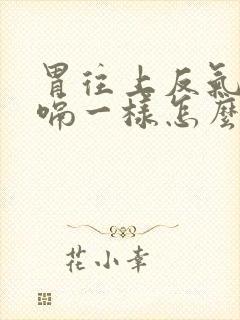 胃往上反氣
嗝一樣怎麼
花小幸